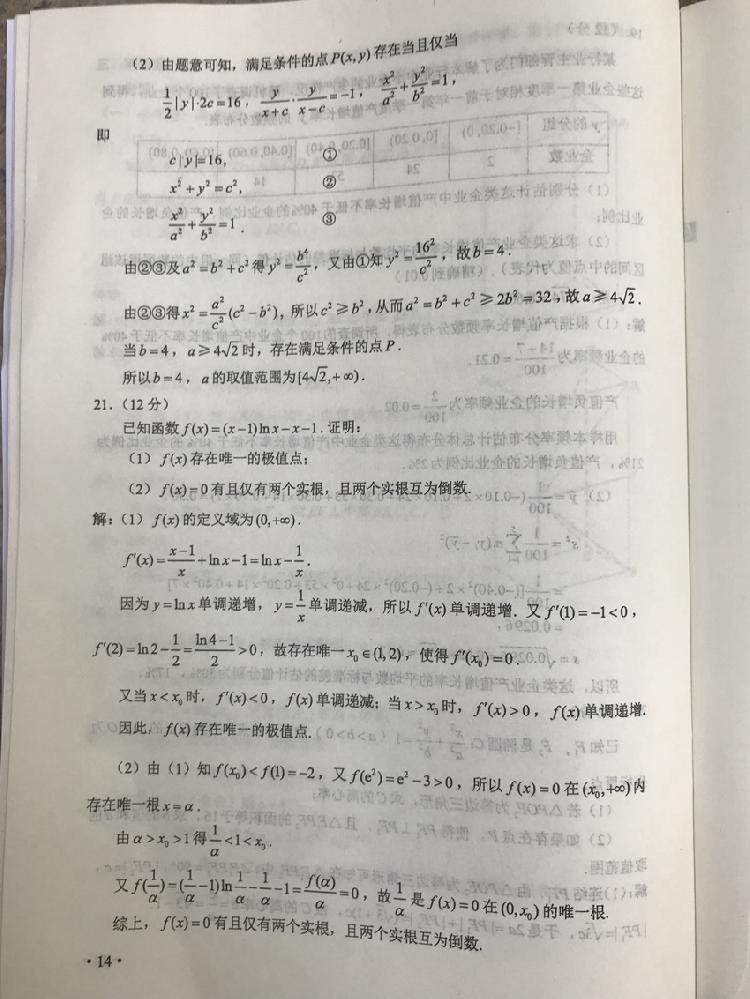 (2) 由题意可知，满足条件的点P(x,y)存在当且仅当
1/2|y|·2c=16，y/(x+c)·y/(x−c)=−1，x²/a²+y²/b²=1，
即
c|y|=16， ①
x²+y²=c²， ②
x²/a²+y²/b²=1． ③
由②③及a²=b²+c²得y²=b⁴/c²，又由①知y²=16²/c²，故b=4．
由②③得x²=a²/c²(c²−b²)，所以c²≥b²，从而a²=b²+c²≥2b²=32，故a≥4√2．
当b=4，a≥4√2时，存在满足条件的点P．
所以b=4，a的取值范围为[4√2,+∞)．
21．(12分)
已知函数f(x)=(x−1)lnx−x−1．证明：
(1) f(x)存在唯一的极值点；
(2) f(x)=0有且仅有两个实根，且两个实根互为倒数．
解：(1) f(x)的定义域为(0,+∞)．
f′(x)=(x−1)/x+lnx−1=lnx−1/x．
因为y=lnx单调递增，y=1/x单调递减，所以f′(x)单调递增．又f′(1)=−1<0，
f′(2)=ln2−1/2=(ln4−1)/2>0，故存在唯一x₀∈(1,2)，使得f′(x₀)=0．
又当x<x₀时，f′(x)<0，f(x)单调递减；当x>x₀时，f′(x)>0，f(x)单调递增．
因此，f(x)存在唯一的极值点．
(2) 由(1)知f(x₀)<f(1)=−2，又f(e²)=e²−3>0，所以f(x)=0在(x₀,+∞)内
存在唯一根x=α．
由α>x₀>1得1/α<1<x₀．
又f(1/α)=(1/α−1)ln1/α−1/α−1=f(α)/α=0，故1/α是f(x)=0在(0,x₀)的唯一根．
综上，f(x)=0有且仅有两个实根，且两个实根互为倒数．
·14·